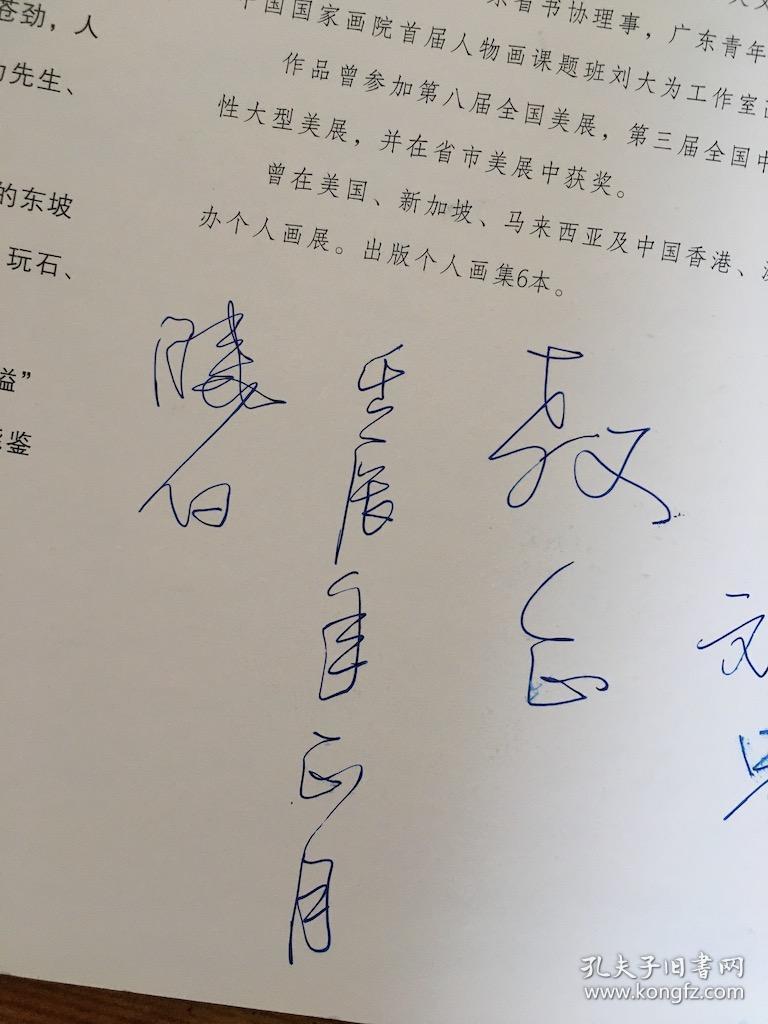 苍劲，人
先生、
的东坡
玩石、
溢”
鉴
省书协理事，广东青年
中国国家画院首届人物画课题班刘大为工作室
作品曾参加第八届全国美展，第三届全国中
性大型美展，并在省市美展中获奖。
曾在美国、新加坡、马来西亚及中国香港、
办个人画展。出版个人画集6本。
教正
壬辰年正月
孔夫子旧书网
www.kongfz.com